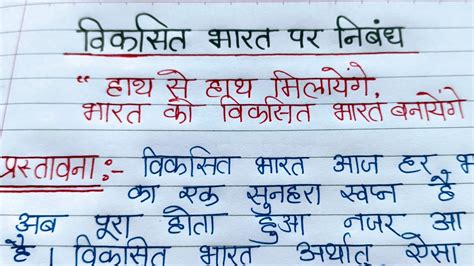 विकसित भारत पर निबंध
“ हाथ से हाथ मिलायेंगे,
भारत को विकसित भारत बनायेंगे
प्रस्तावना :- विकसित भारत आज हर
का एक सुनहरा स्वप्न है
अब पूरा होता हुआ नजर आ
है । विकसित भारत अर्थात् ऐसा